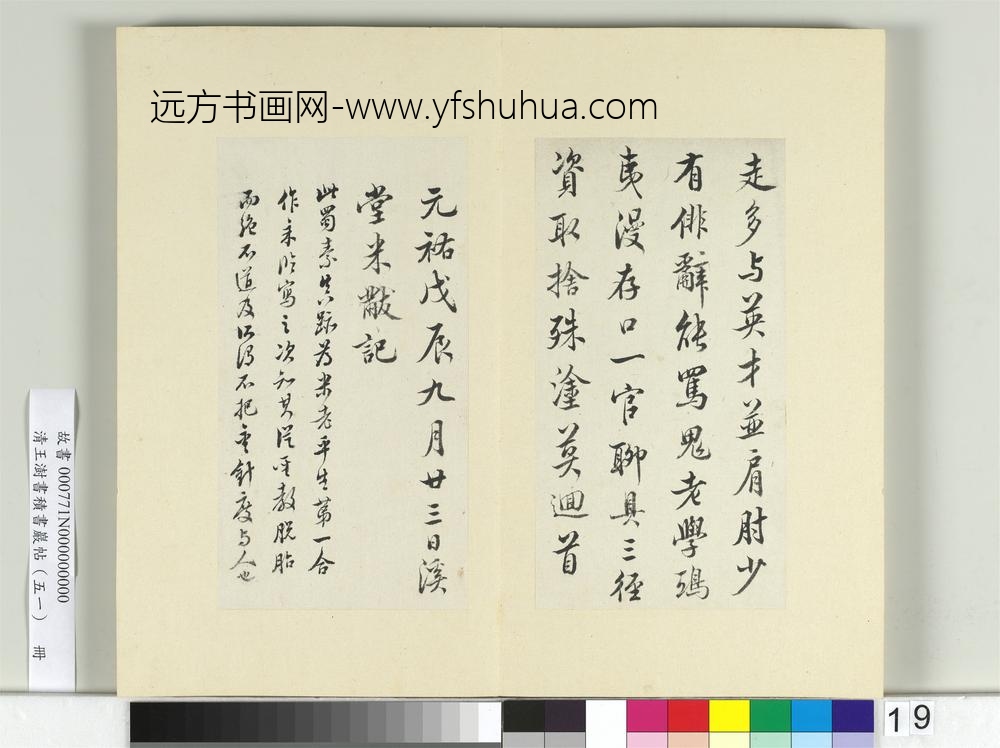 远方书画网-www.yfshuhua.com
走多与英才並肩肘少
有俳辭能罵鬼老學鴟
夷漫存口一官聊具三徑
資取捨殊塗莫迴首
元祐戊辰九月廿三日溪
堂米黻記
此蜀素真跡為米老平生第一合
作臨寫之次知其從聖教脫胎
而絕不道及所謂不把金針度与人也
故書 000771N000000000
清王澍書積書巖帖（五一） 冊
19